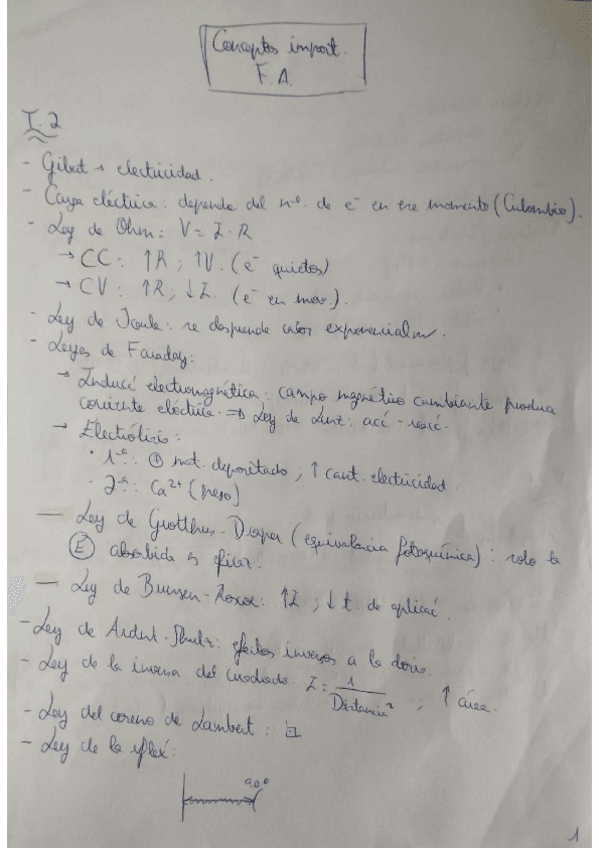 Conceptos import.
F.A.
T.2
- Gilbet → electricidad.
- Carga eléctrica: depende del nº. de e⁻ en ese momento (Culombio).
- Ley de Ohm: V = I · R
→ CC: ↑R ; ↑V. (e⁻ quietos)
→ CV: ↑R ; ↓I. (e⁻ en mov.).
- Ley de Joule: se desprende calor exponencialm.
- Leyes de Faraday:
→ Inducc electromagnética: campo magnético cambiante produce
corriente eléctrica. ⇒ Ley de Lenz: acc - reacc.
→ Electrólisis:
· 1ª: ⊕ mat. depositado ; ↑ cant. electricidad.
· 2ª: Ca²⁺ (peso)
— Ley de Grotthus-Draper (equivalencia fotoquímica): solo la
Ⓔ absorbida es eficaz.
— Ley de Bunsen-Roscoe: ↑I ; ↓ t. de aplicac.
- Ley de Arndt-Shulz: efectos inversos a la dosis.
- Ley de la inversa del cuadrado: I = 1 / Distancia² ; ↑ área.
- Ley del coseno de Lambert:
- Ley de la reflex:
90º
1